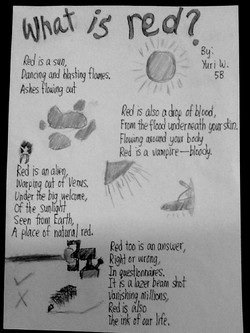 What is red?
By:
Yuri W.
5B
Red is a sun,
Dancing and blasting flames.
Ashes flowing out
Red is also a drop of blood,
From the flood underneath your skin.
Flowing around your body
Red is a vampire—bloody.
Red is an alien,
Weeping out of Venus.
Under the big welcome,
Of the sunlight
Seen from Earth,
A place of natural red.
Red too is an answer,
Right or wrong,
In questionnaires.
It is a lazer beam shot
Vanishing millions,
Red is also
The ink of our life.